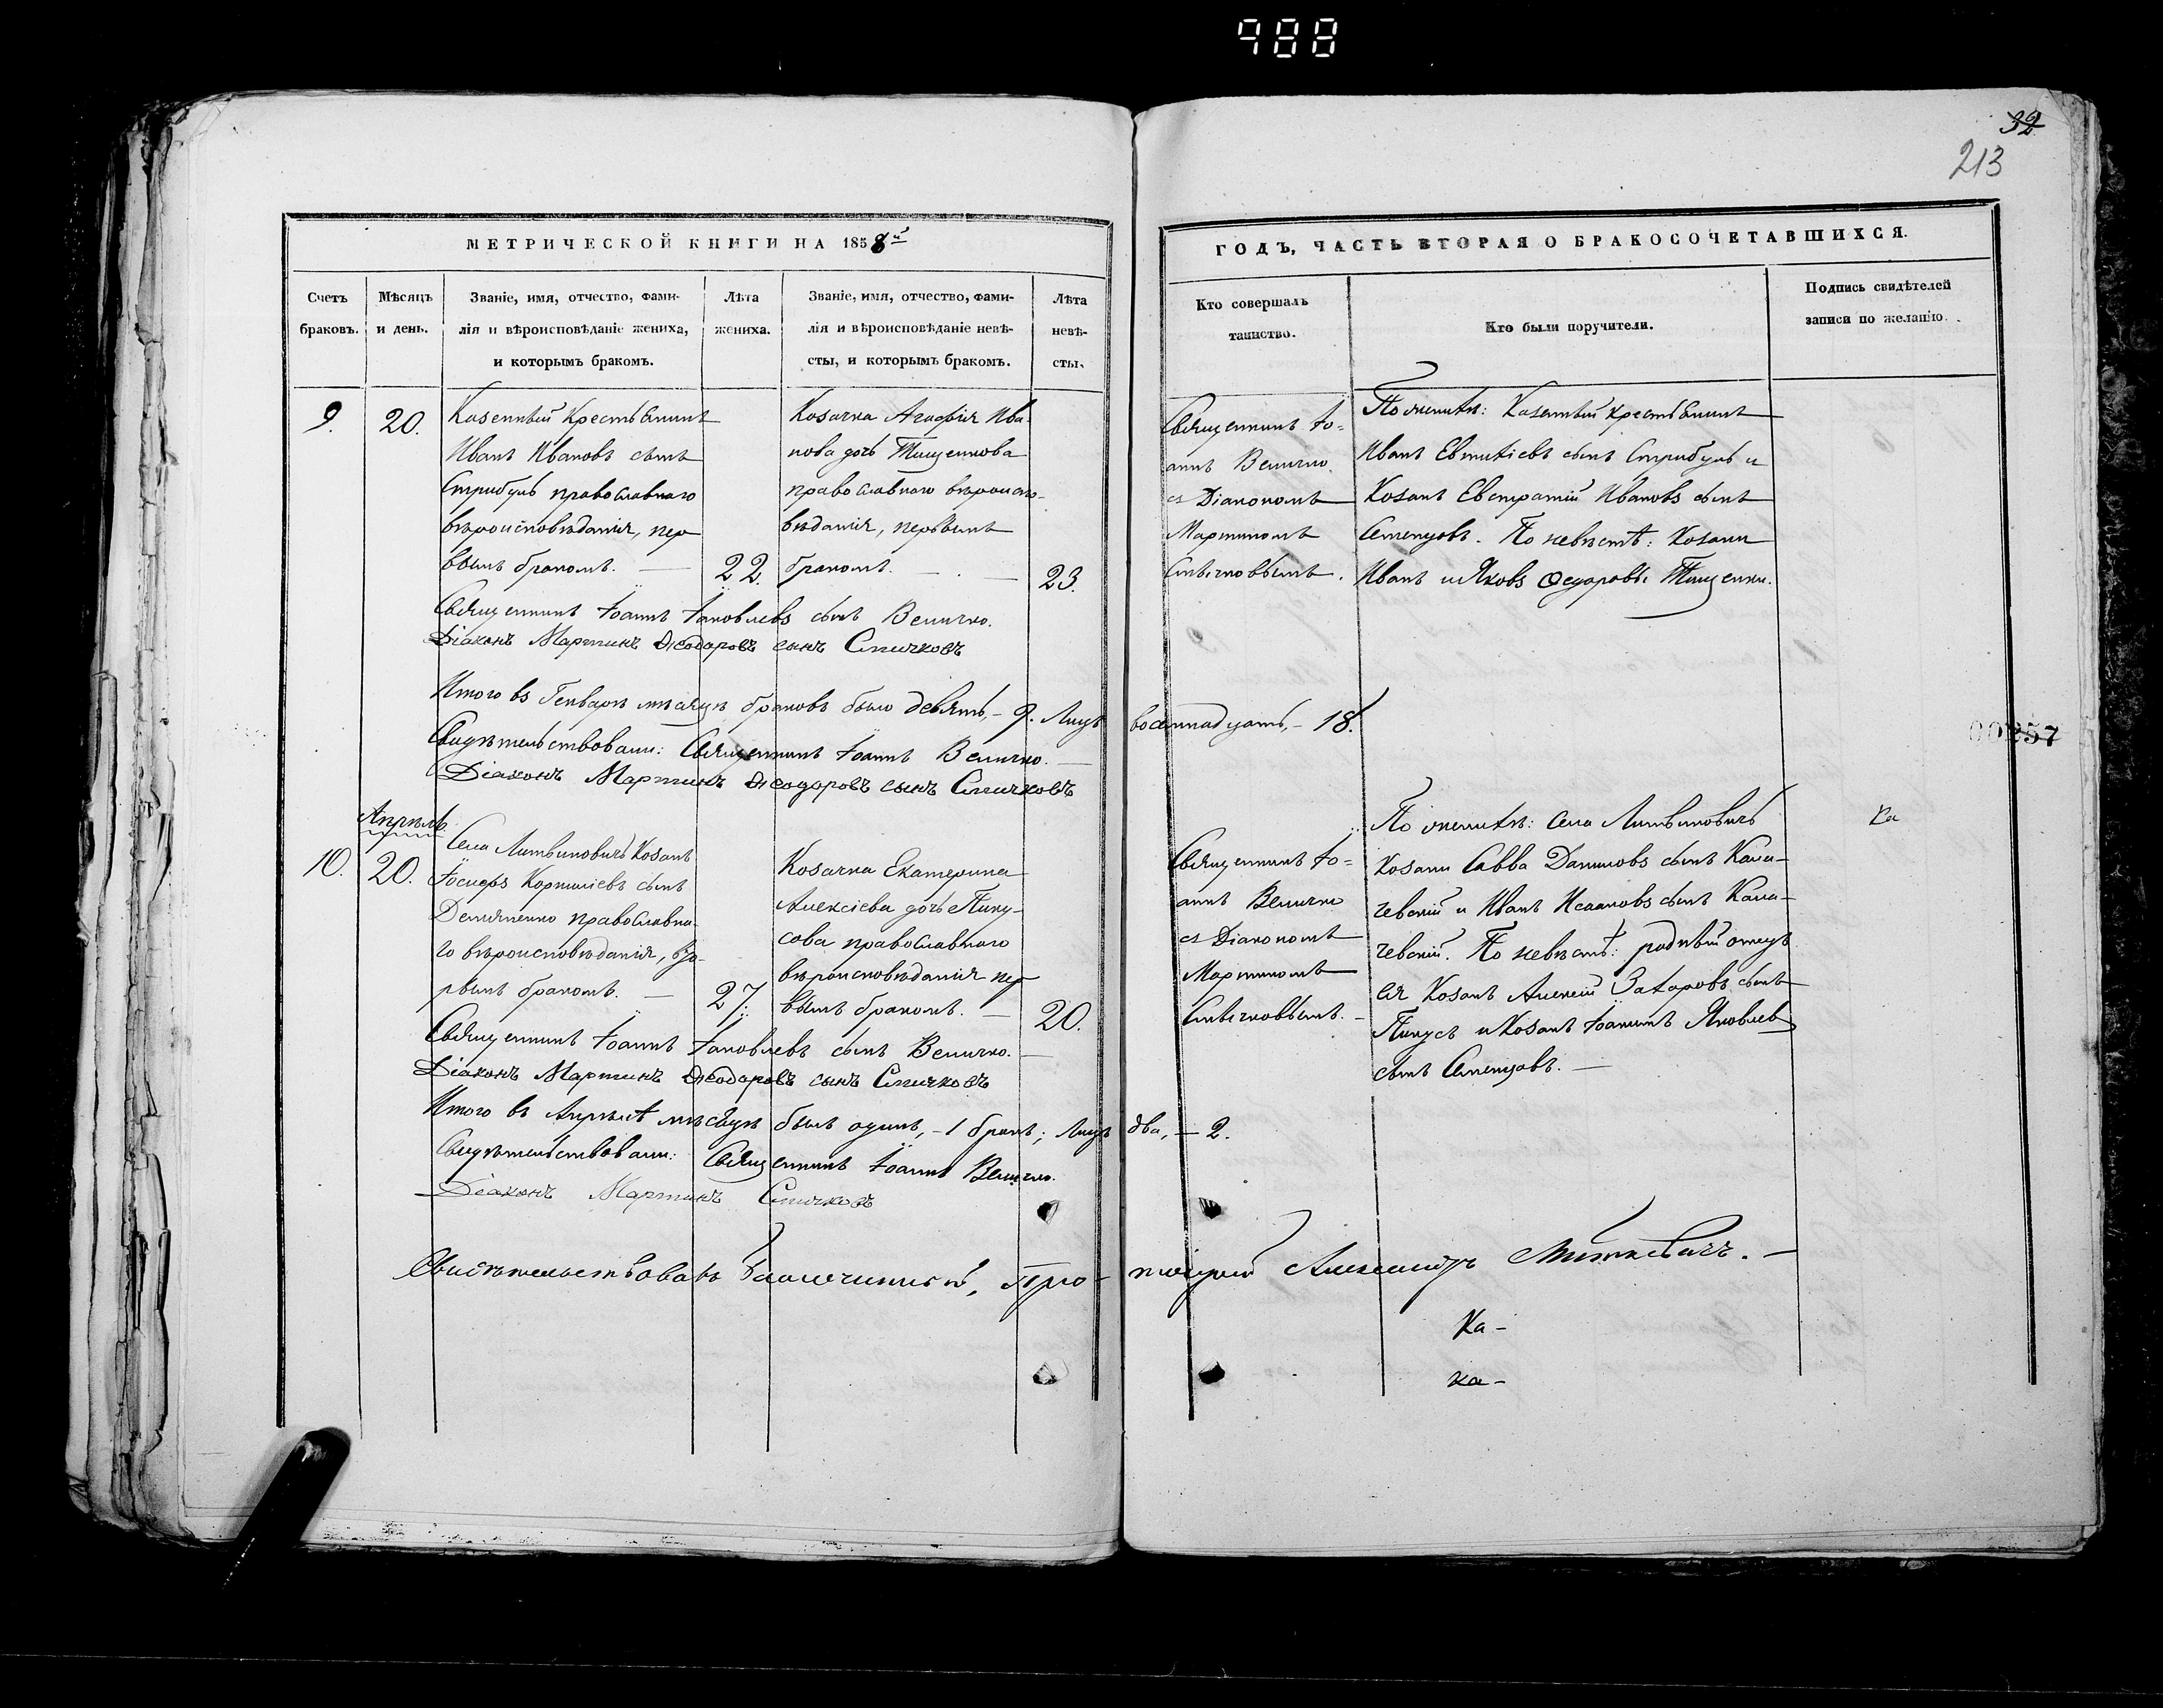 988
32
213
МЕТРИЧЕСКОЙ КНИГИ НА 1858й
ГОДЪ, ЧАСТЬ ВТОРАЯ О БРАКОСОЧЕТАВШИХСЯ.
Счетъ
браковъ.
Мѣсяцъ
и день.
Званіе, имя, отчество, фами-
лія и вѣроисповѣданіе жениха,
и которымъ бракомъ.
Лѣта
жениха.
Званіе, имя, отчество, фами-
лія и вѣроисповѣданіе невѣ-
сты, и которымъ бракомъ.
Лѣта
невѣ-
сты.
Кто совершалъ
таинство.
Кто были поручители.
Подпись свидѣтелей
записи по желанію.
9.
20.
Казенный Крестьянинъ
Иванъ Ивановъ сынъ
Стрибуль православнаго
вѣроисповѣданія, пер
вымъ бракомъ. —
22.
Козачка Агафія Ива-
нова дочь Тищенкова
православнаго вѣроиспо-
вѣданія, первымъ
бракомъ. —
23.
Священникъ Іо=
аннъ Величко
съ Діакономъ
Мартиномъ
Спичковымъ.
По женихѣ: Казенный крестьянинъ
Иванъ Евтихіевъ сынъ Стрибуль и
Козакъ Евстратій Ивановъ сынъ
Семенцовъ. По невѣстѣ: Козаки
Иванъ и Яковъ Ѳедоровы Тищенки.
Священникъ Іоаннъ Іаковлевъ сынъ Величко.
Діаконъ Мартинъ Ѳеодоровъ сынъ Спичковъ
Итого въ Генварѣ мѣсяцѣ браковъ было девять, – 9. Лицъ восемнадцать, – 18.
Свидѣтельствовали: Священникъ Іоаннъ Величко. —
Діаконъ Мартинъ Ѳеодоровъ сынъ Спичковъ
00257
Апрѣль
10.
20.
Села Литвиновичъ Козакъ
Іосифъ Корниліевъ сынъ
Демяненко православна-
го вѣроисповѣданія, вто-
рымъ бракомъ. —
27.
Козачка Екатерина
Алексіева дочь Пику-
сова православнаго
вѣроисповѣданія пер
вымъ бракомъ. —
20.
Священникъ Іо=
аннъ Величко
съ Діакономъ
Мартиномъ
Спичковымъ. –
По женихѣ: села Литвиновичъ
Козаки Савва Даниловъ сынъ Кала-
чевскій и Иванъ Исааковъ сынъ Кала-
чевскій. По невѣстѣ: родный отецъ
ея Козакъ Алексій Захаровъ сынъ
Пикусъ и Козакъ Іоакимъ Яковлев
сынъ Семенцовъ. —
Ка
Священникъ Іоаннъ Іаковлевъ сынъ Величко. —
Діаконъ Мартинъ Ѳеодоровъ сынъ Спичковъ
Итого въ Апрѣлѣ мѣсяцѣ былъ одинъ, – 1 бракъ; Лицъ два, – 2.
Свидѣтельствовали: Священникъ Іоаннъ Величко.
Діаконъ Мартинъ Спичковъ
Свидѣтельствовалъ Благочинный, Про-тоіерей Александръ
Ка –
ка –